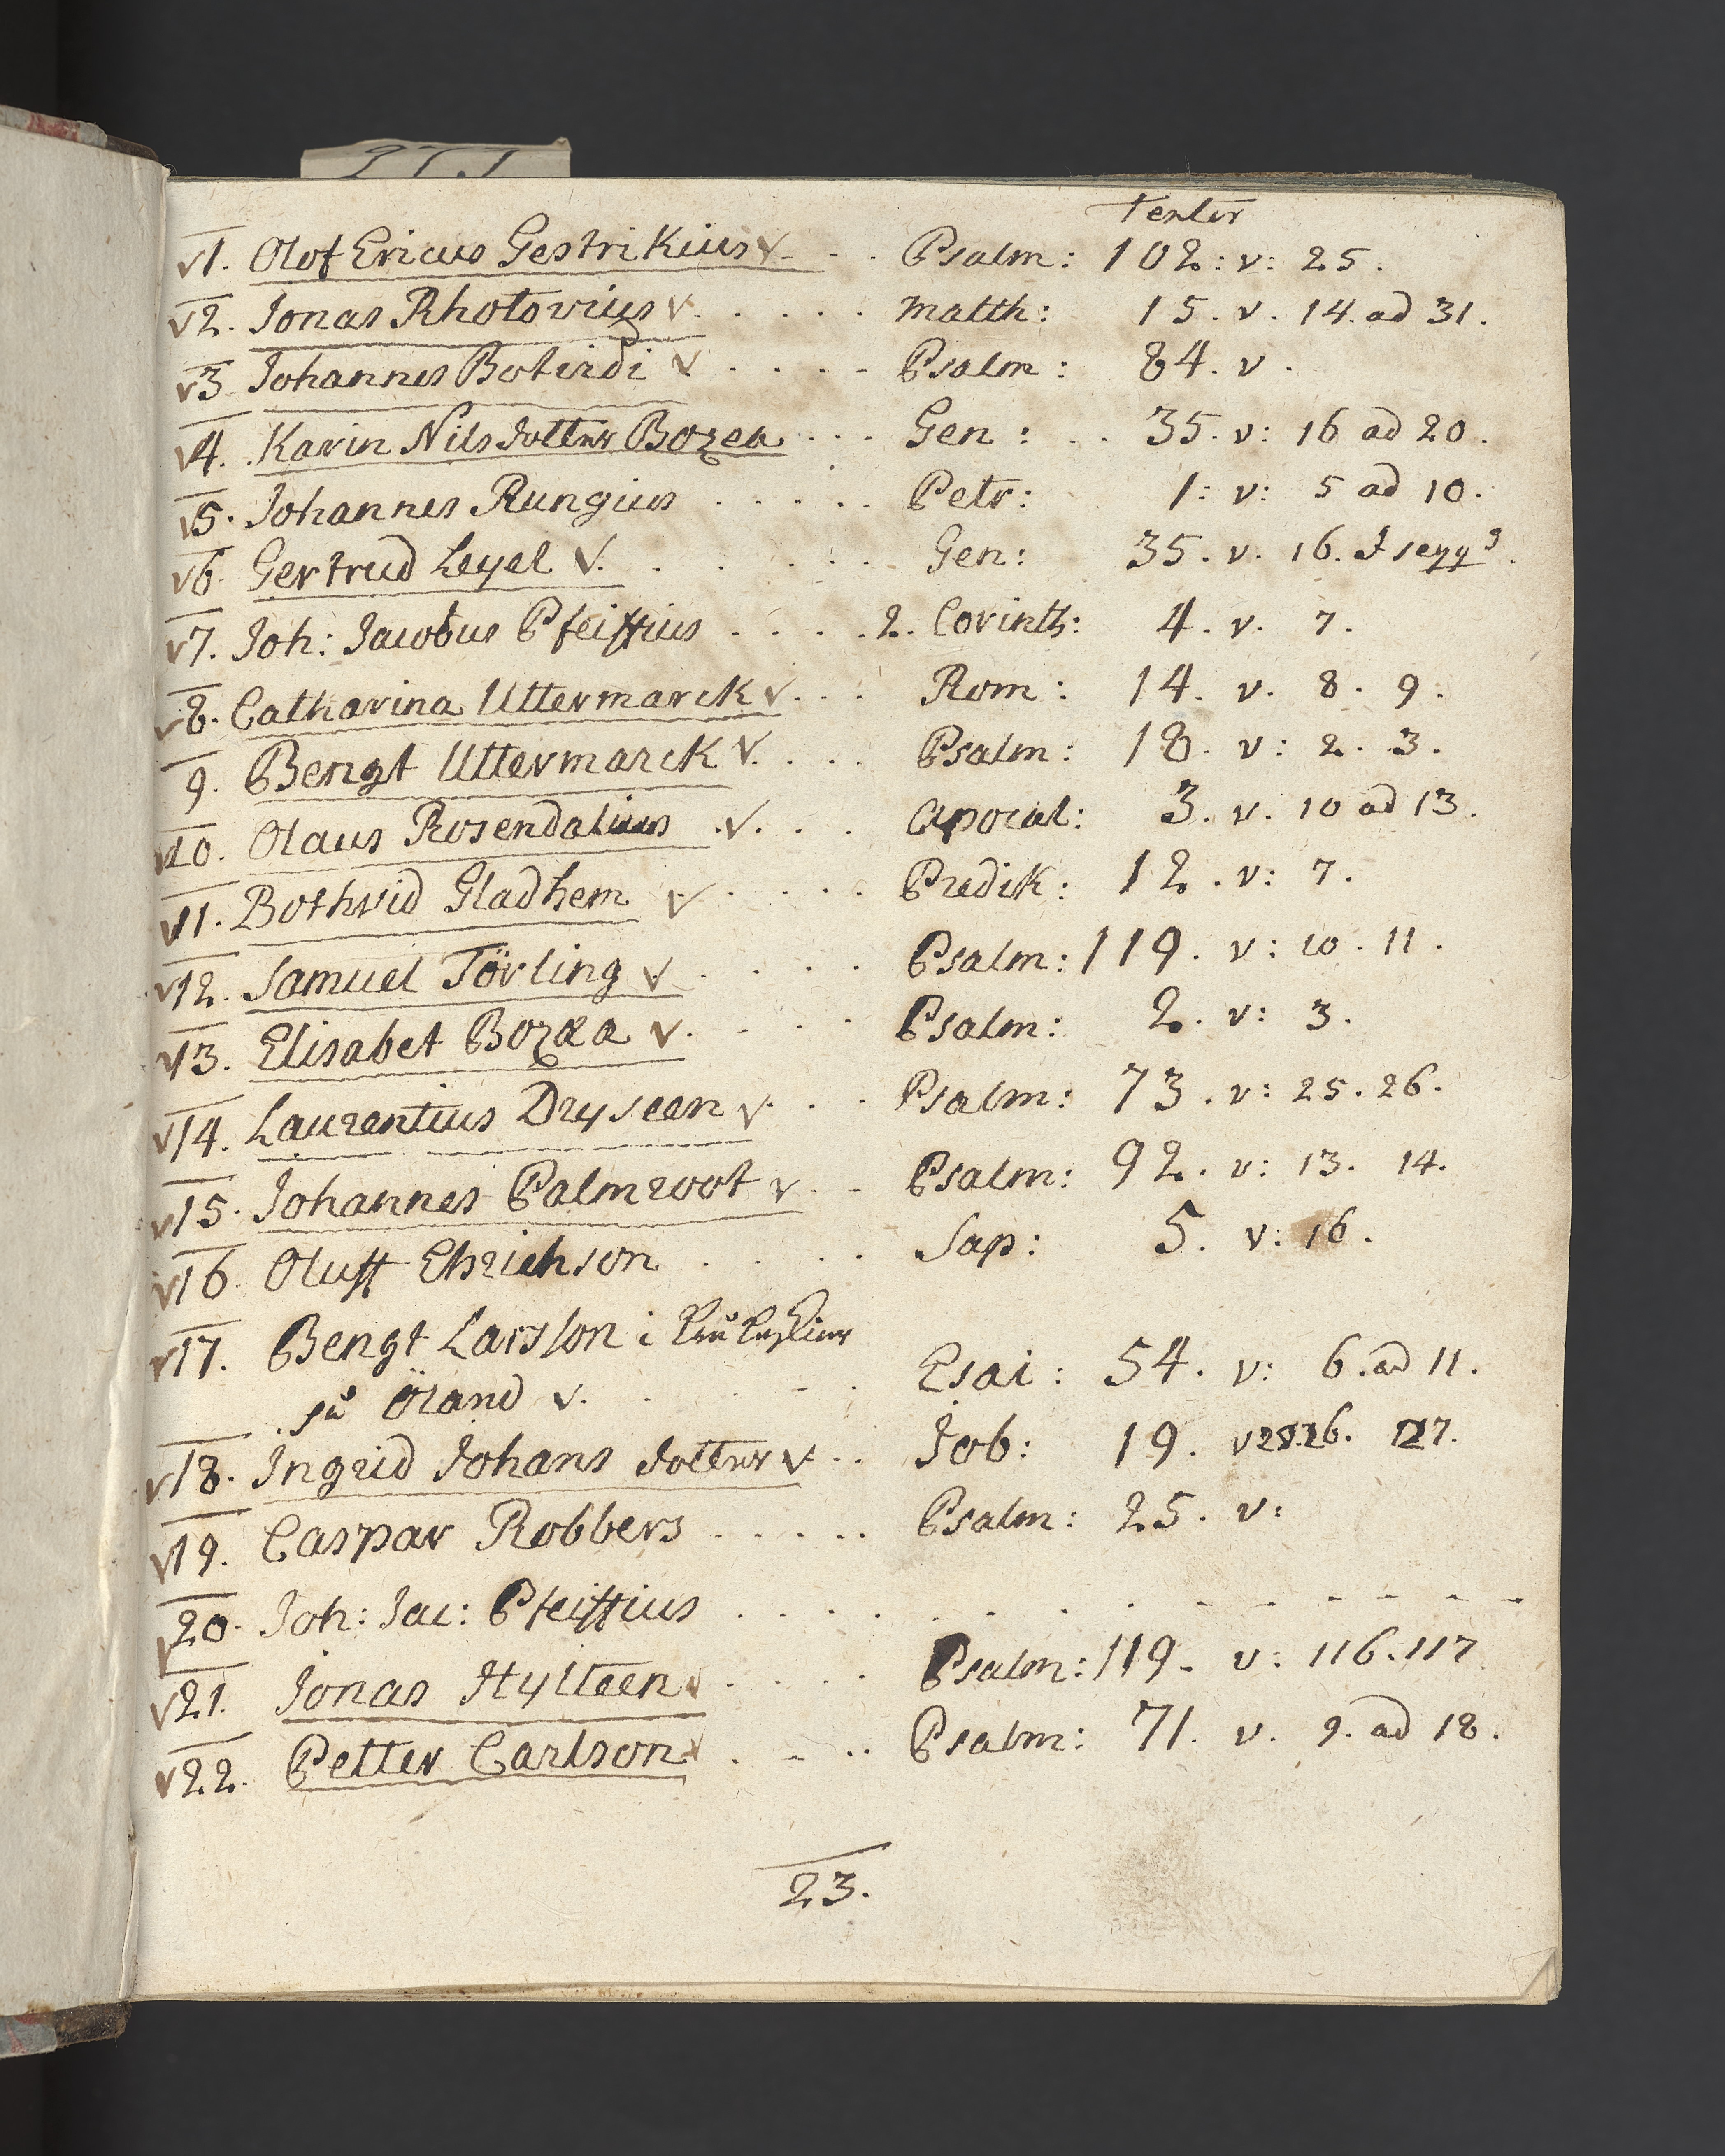 Texter
1. Olof Ericus Gestrikius v. . . Psalm: 102: v: 25.
2. Jonas Rhotovius v. . . . . Matth: 15. v. 14. ad 31.
3. Johannes Botvidi v . . . . Psalm: 84. v.
4. Karin Nils dotter Bozea . . . Gen: . . 35. v: 16 ad 20.
5. Johannes Rungius . . . . . Petr: 1: v: 5 ad 10.
6. Gertrud Leyel v. . . . . . Gen: 35. v. 16. & seqq.
7. Joh: Jacobus Pfeiffius . . . . 2. Corinth: 4. v. 7.
8. Catharina Uttermarck v. . . Rom: 14. v. 8. 9.
9. Bengt Uttermarck v. . . . Psalm: 18. v: 2. 3.
10. Olaus Rosendalius v. . . Apocal: 3. v. 10 ad 13.
11. Bothvid Gladhem v . . . . Predik: 12. v: 7.
12. Samuel Törling v . . . . Psalm: 119. v: 10. 11.
13. Elisabet Bozæa v. . . . Psalm: 2. v: 3.
14. Laurentius Dryseen v. . . Psalm: 73. v: 25. 26.
15. Johannes Palmroot v . . Psalm: 92. v: 13. 14.
16. Oluff Ehrichson . . . . Sap: 5. v: 16.
17. Bengt Larsson i
på Öland v. . . . . Esai: 54. v: 6. ad 11.
18. Ingrid Johans dotter v . . Job: 19. v 26. 27.
19. Caspar Robbers . . . . . Psalm: 25. v:
20. Joh: Jac: Pfeiffius . . . . . . . . . . . . . .
21. Jonas Hylteen v . . . . Psalm: 119. v: 116. 117
22. Petter Carlson v . . . . Psalm: 71. v. 9. ad 18.
23.